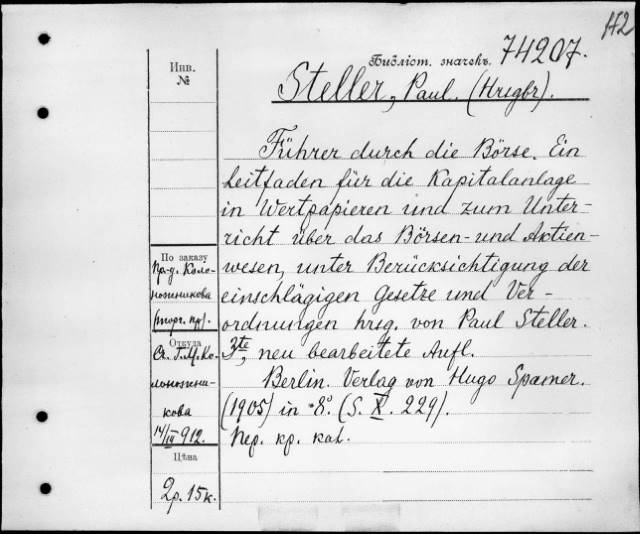 H2
Библіот. значекъ. 74207.
Steller, Paul. (Hrsgbr).
Инв.
№
Führer durch die Börse. Ein
Leitfaden für die Kapitalanlage
in Wertpapieren und zum Unter-
richt über das Börsen- und Aktien-
wesen, unter Berücksichtigung der
einschlägigen Gesetze und Ver-
ordnungen hrsg. von Paul Steller.
3te, neu bearbeitete Aufl.
Berlin. Verlag von Hugo Spamer.
(1905) in 8°. (S. X. 229).
Пер. кр. кал.
По заказу
Пр-д. Коло-
ножникова
(торг. кр).
Откуда
Ст. Г. М. Ко-
лоножни-
кова
14/IV 912.
Цѣна
2р. 15к.